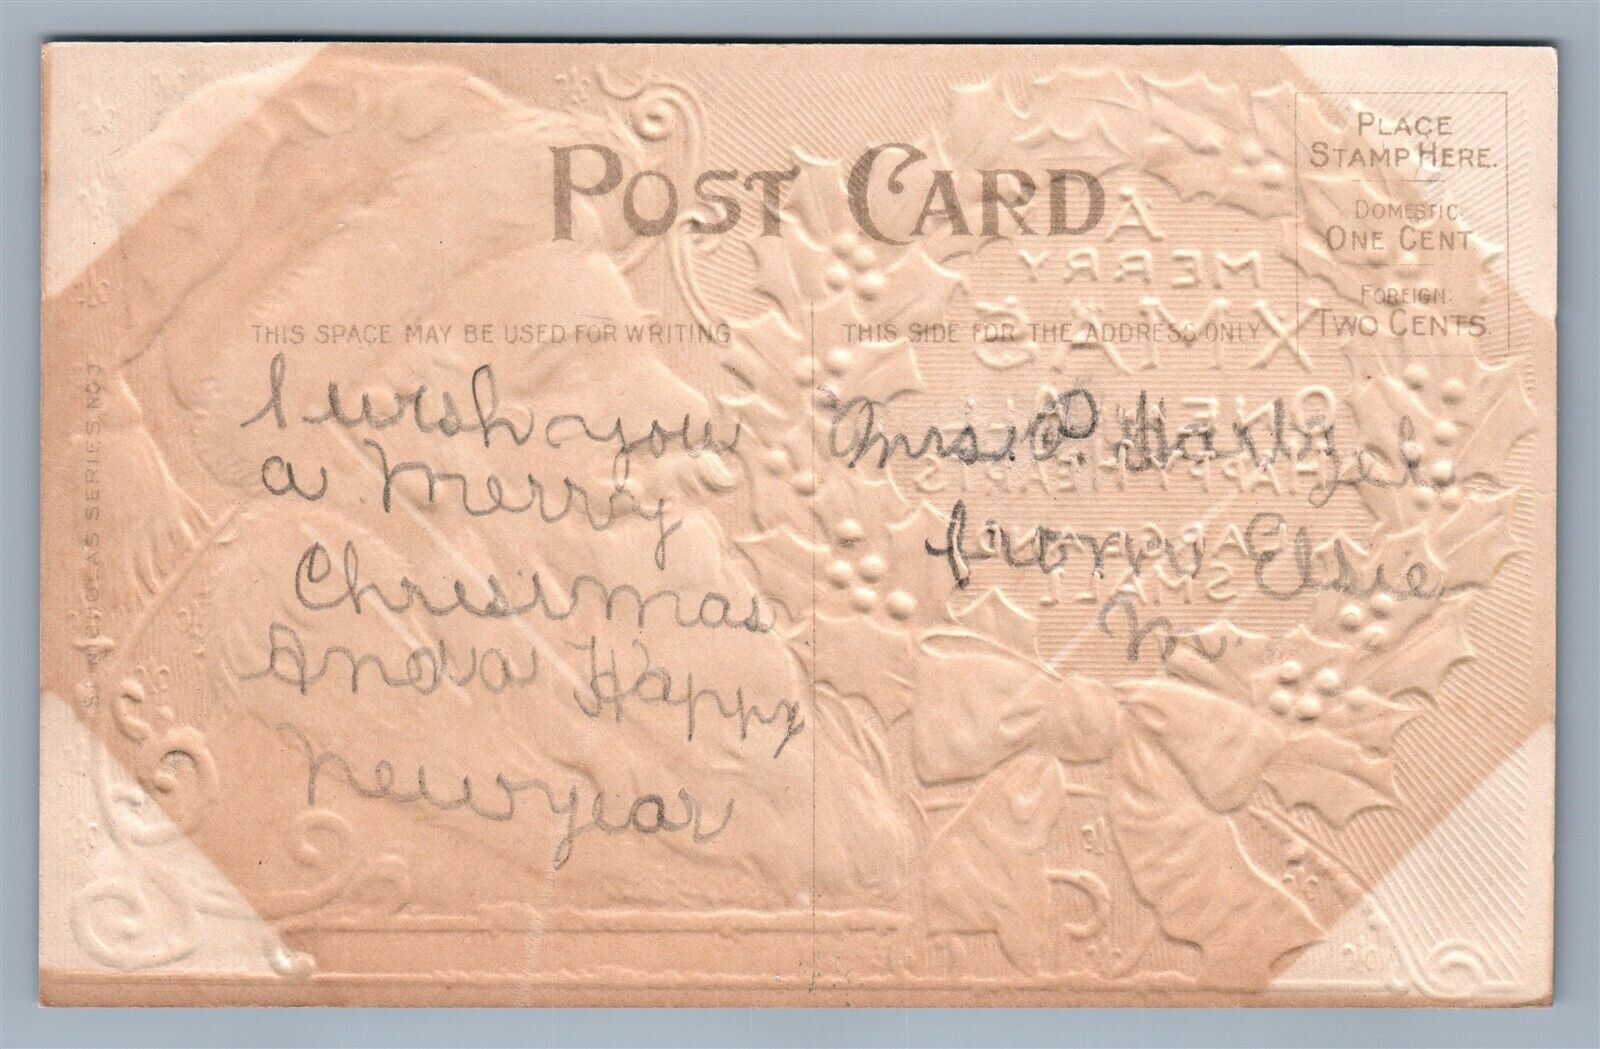 POST CARD
PLACE
STAMP HERE.
DOMESTIC:
ONE CENT.
FOREIGN:
TWO CENTS.
THIS SPACE MAY BE USED FOR WRITING
THIS SIDE FOR THE ADDRESS ONLY
I wish you
a Merry
Christmas
And a Happy
New year
Mrs. P.
from Elsie
M.
ST. NICHOLAS SERIES NO 3
A
MERRY
XMAS
ONE & ALL
HAPPY HEARTS
LARGE AND
SMALL